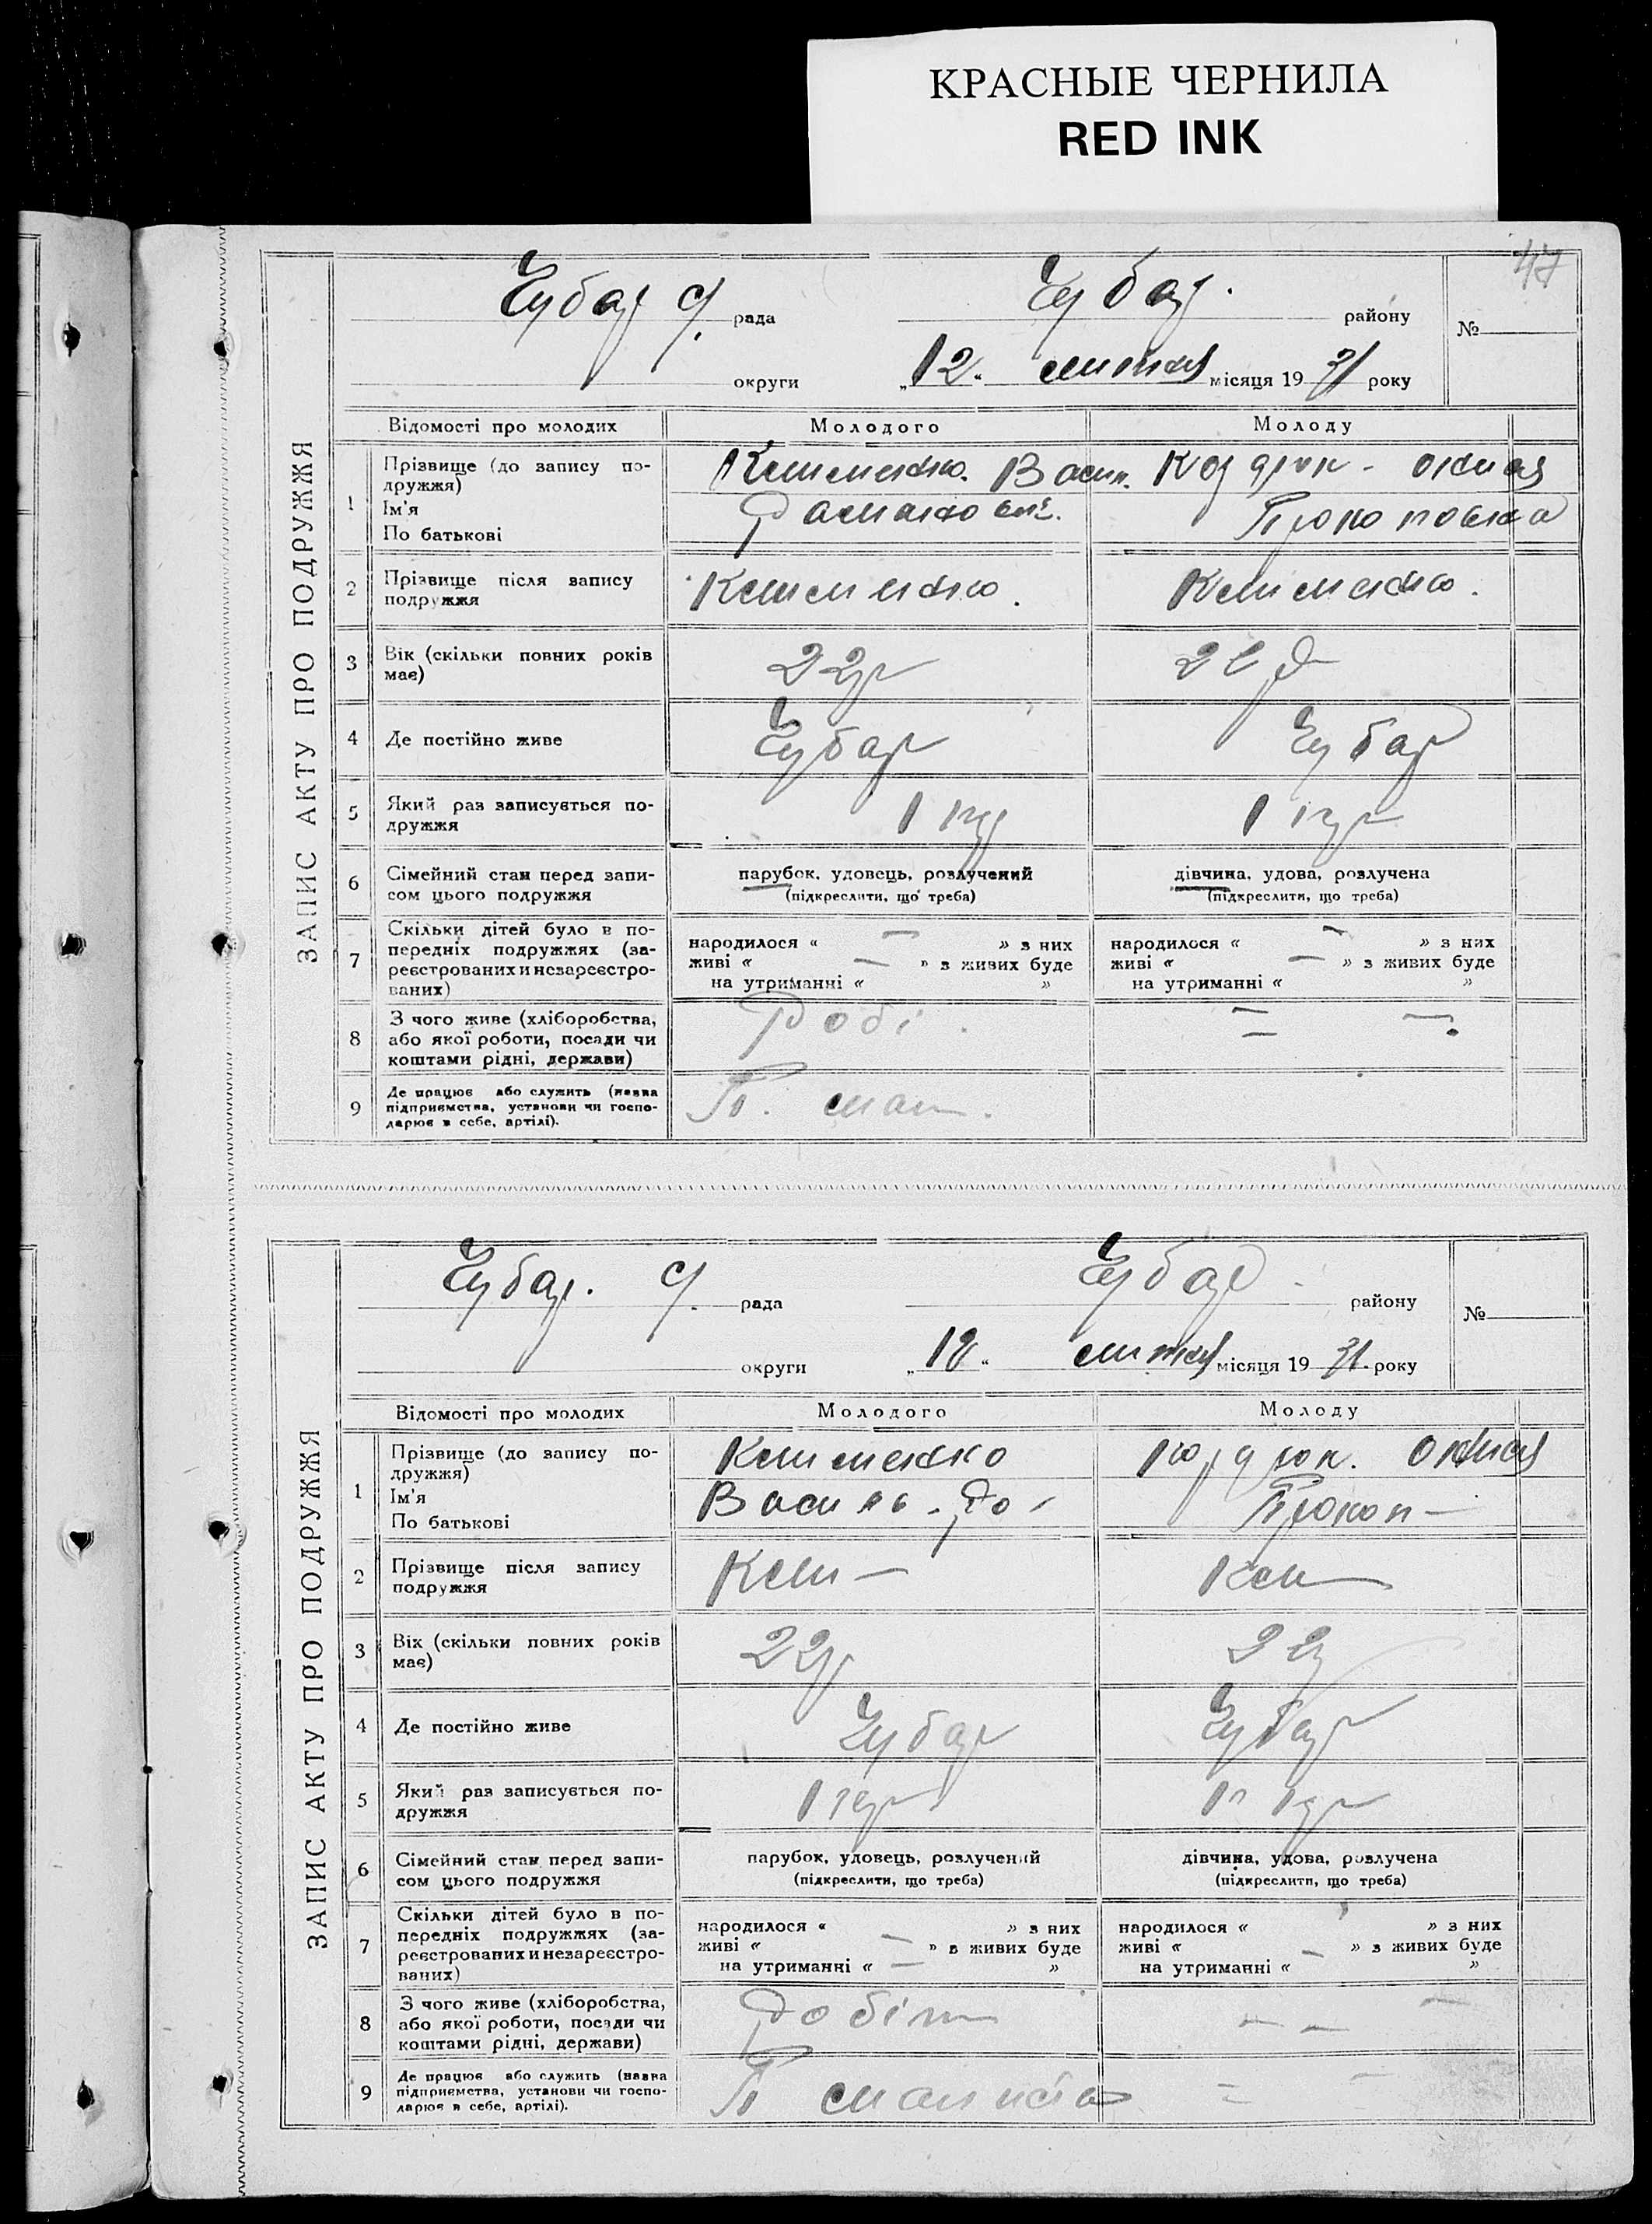 КРАСНЫЕ ЧЕРНИЛА
RED INK
47
ЗАПИС АКТУ ПРО ПОДРУЖЖЯ
Чубар с. рада Чубар. району №
округи „12“ лютня місяця 1931 року
Відомості про молодих Молодого Молоду
1 Прізвище (до запису подружжя)
Ім'я
По батькові
Василь
Романович.
Прокоповна
2 Прізвище після запису
подружжя
3 Вік (скільки повних років
має)
22р
4 Де постійно живе Чубар Чубар
5 Який раз записується по-
дружжя
1 1
6 Сімейний стан перед запи-
сом цього подружжя
парубок, удовець, розлучений
(підкреслити, що треба)
дівчина, удова, розлучена
(підкреслити, що треба)
7 Скільки дітей було в по-
передніх подружжях (за-
реєстрованих и незареєстро-
ваних)
народилося « — » з них
живі « — » з живих буде
на утриманні « »
народилося « — » з них
живі « — » з живих буде
на утриманні « »
8 З чого живе (хліборобства,
або якої роботи, посади чи
коштами рідні, держави)
Робі. — —
9 Де працює або служить (назва
підприємства, установи чи госпо-
дарює в себе, артілі).
ЗАПИС АКТУ ПРО ПОДРУЖЖЯ
Чубар. с. рада Чубар. району №
округи „12“ місяця 1931 року
Відомості про молодих Молодого Молоду
1 Прізвище (до запису по-
дружжя)
Ім'я
По батькові
Василь. Ро-
Прокоп-
2 Прізвище після запису
подружжя
3 Вік (скільки повних років
має)
22р
4 Де постійно живе Чубар Чубар
5 Який раз записується по-
дружжя
1
6 Сімейний стан перед запи-
сом цього подружжя
парубок, удовець, розлучений
(підкреслити, що треба)
дівчина, удова, розлучена
(підкреслити, що треба)
7 Скільки дітей було в по-
передніх подружжях (за-
реєстрованих и незареєстро-
ваних)
народилося « » з них
живі « — » з живих буде
на утриманні « — »
народилося « » з них
живі « — » з живих буде
на утриманні « »
8 З чого живе (хліборобства,
або якої роботи, посади чи
коштами рідні, держави)
Робітн — — —
9 Де працює або служить (назва
підприємства, установи чи госпо-
дарює в себе, артілі).